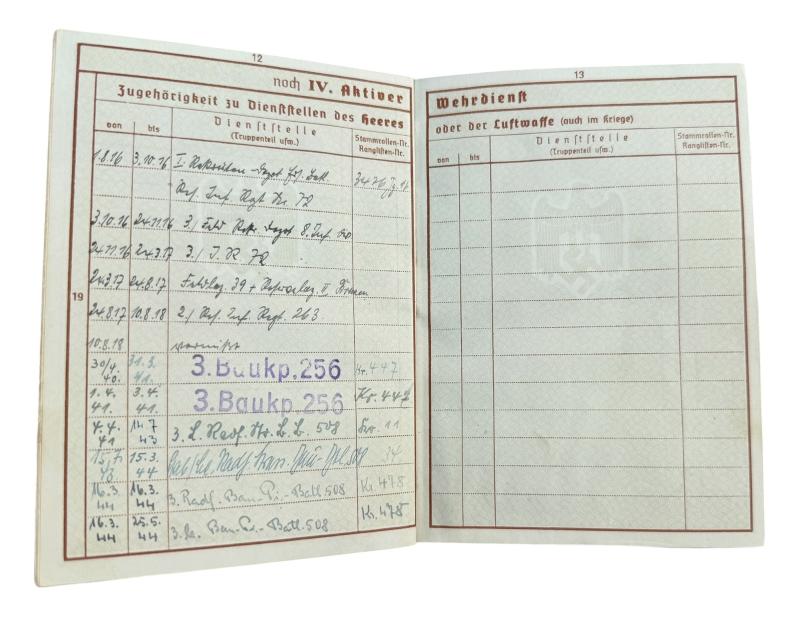 12
noch IV. Aktiver
Zugehörigkeit zu Dienststellen des Heeres
von bis Dienststelle (Truppenteil usw.) Stammrollen-Nr. Ranglisten-Nr.
1.8.16 3.10.16 I
Res. Inf. Rgt Nr. 72
3.10.16 24.11.16 3./ Feld Rekr. Depot 8. Inf.
24.11.16 3./ I. R. 72
24.8.17 39 + II
19
24.8.17 10.8.18 2./ Res. Inf. Regt. 263
10.8.18 vermißt
30/4. 40. 31.3. 41. 3.Baukp.256 Kr. 442
1.4. 41. 3.4. 41. 3.Baukp.256 Kr. 442
4.4. 41 14.7 43 3. L. Radf. Str. B. B. 508 11
15.7. 43 15.3. 44 34
16.3. 44 16.3. 44 3. Radf. Bau-Pi.-Batl. 508 Kr. 478
16.3. 44 25.5. 44 Bau-Pi.-Batl. 508 Kr. 478
13
Wehrdienst
oder der Luftwaffe (auch im Kriege)
von bis Dienststelle (Truppenteil usw.) Stammrollen-Nr. Ranglisten-Nr.